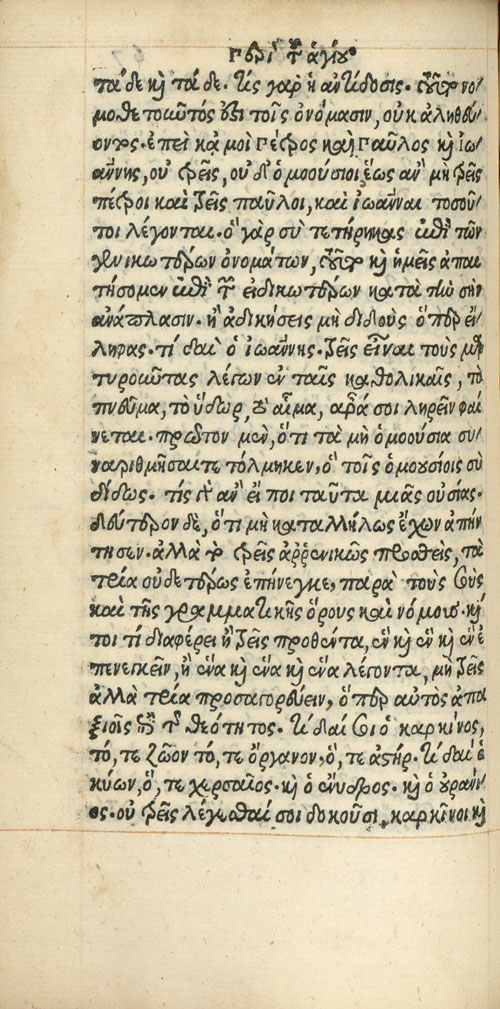 Περὶ τοῦ ἁγίου
τάδε καὶ τάδε. τίς γὰρ ἡ ἀντίδοσις. τοῦτο νο-
μοθετοῦντός ἐστι τοῖς ὀνόμασιν, οὐκ ἀληθεύ-
οντος. ἐπεὶ κἀμοὶ Πέτρος καὶ Παῦλος καὶ Ἰω-
άννης, οὐ τρεῖς, οὐδ' ὁμοούσιοι, ἕως ἂν μὴ τρεῖς
πέτροι καὶ τρεῖς παῦλοι, καὶ ἰωάνναι τοσοῦ-
τοι λέγονται. ὃ γὰρ σὺ τετήρηκας ἐπὶ τῶν
γενικωτέρων ὀνομάτων, τοῦτο καὶ ἡμεῖς ἀπαι-
τήσομεν ἐπὶ τῶν εἰδικωτέρων κατὰ τὴν σὴν
ἀνάπλασιν. ἢ ἀδικήσεις μὴ διδοὺς ὅπερ εἴ-
ληφας. τί δαὶ ὁ ἰωάννης. τρεῖς εἶναι τοὺς μαρ-
τυροῦντας λέγων ἐν ταῖς καθολικαῖς, τὸ
πνεῦμα, τὸ ὕδωρ, τὸ αἷμα, ἆρά σοι ληρεῖν φαί-
νεται. πρῶτον μὲν, ὅτι τὰ μὴ ὁμοούσια συ-
ναριθμῆσαι τετόλμηκεν, ὃ τοῖς ὁμουσίοις σὺ
δίδως. τίς γὰρ ἂν εἴποι ταῦτα μιᾶς οὐσίας.
δεύτερον δὲ, ὅτι μὴ καταλλήλως ἔχων ἀπήν-
τησεν. ἀλλὰ τὸ τρεῖς ἀῤῥενικῶς προθεὶς, τὰ
τρία οὐδετέρως ἐπήνεγκε, παρὰ τοὺς σοὺς
καὶ τῆς γραμματικῆς ὅρους καὶ νόμους. καί-
τοι τί διαφέρει ἢ τρεῖς προθέντα, ἓν καὶ ἓν καὶ ἓν ἐ-
πενεγκεῖν, ἢ ἕνα καὶ ἕνα καὶ ἕνα λέγοντα, μὴ τρεῖς
ἀλλὰ τρία προσαγορεύειν, ὅπερ αὐτὸς ἀπα-
ξιοῖς ἐπὶ τῆς θεότητος. τί δαί σοι ὁ καρκίνος,
τό, τε ζῶον τό, τε ὄργανον, ὅ, τε ἀστήρ. τί δαὶ ὁ
κύων, ὅ, τε χερσαῖος. καὶ ὁ ἔνυδρος. καὶ ὁ οὐράνι-
ος. οὐ τρεῖς λέγεσθαί σοι δοκοῦσι, καρκῖνοι καὶ